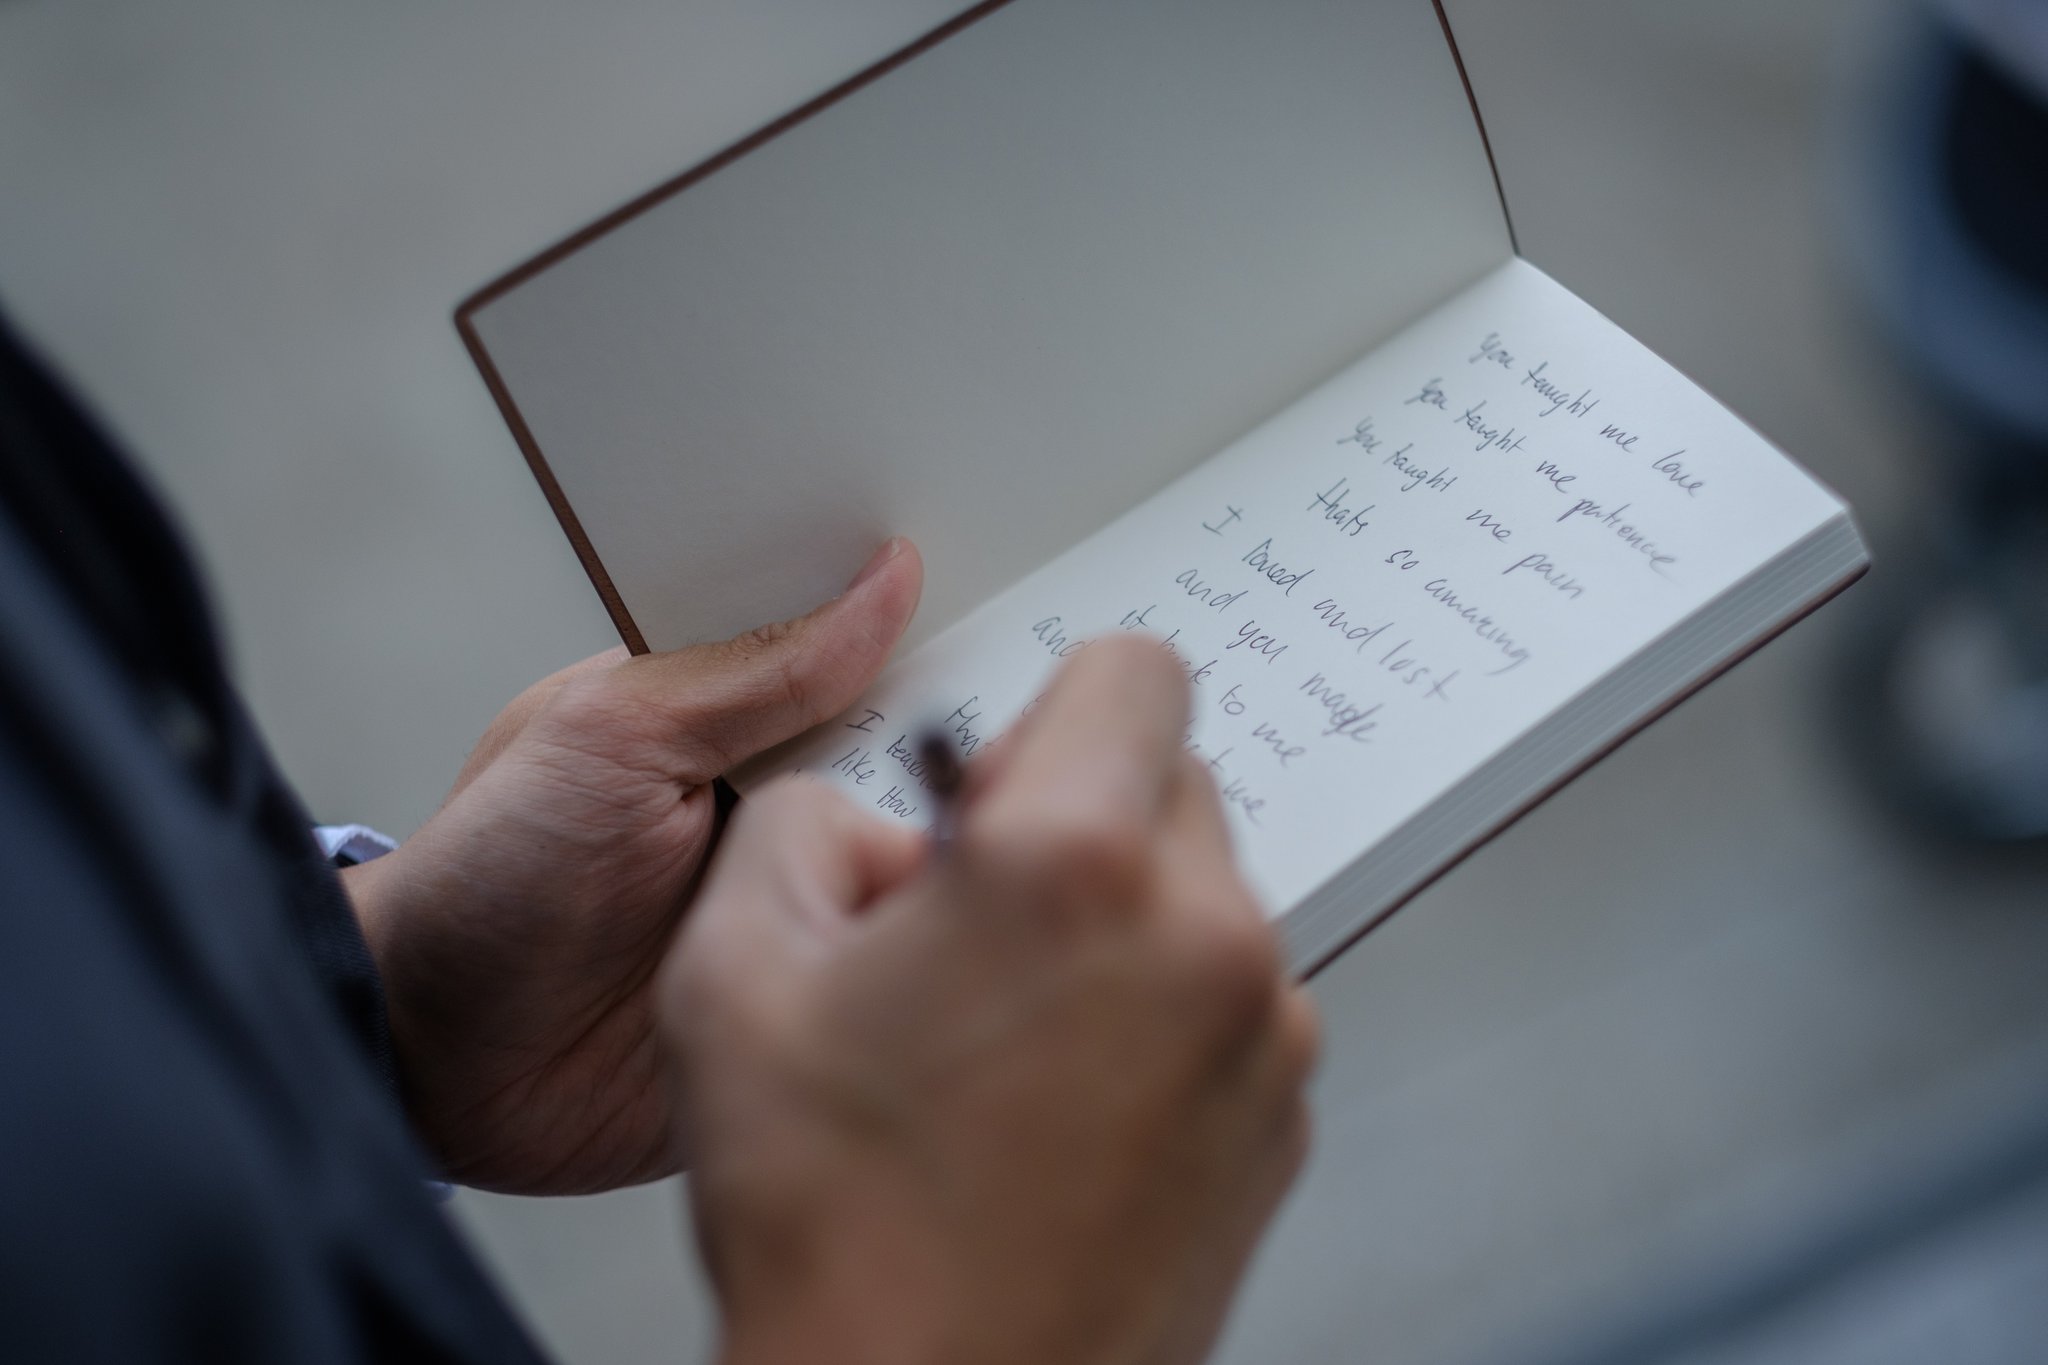 You taught me love
You taught me patience
You taught me pain
thats so amazing
I loved and lost
and you made
it back to me
and me
that
I
like How